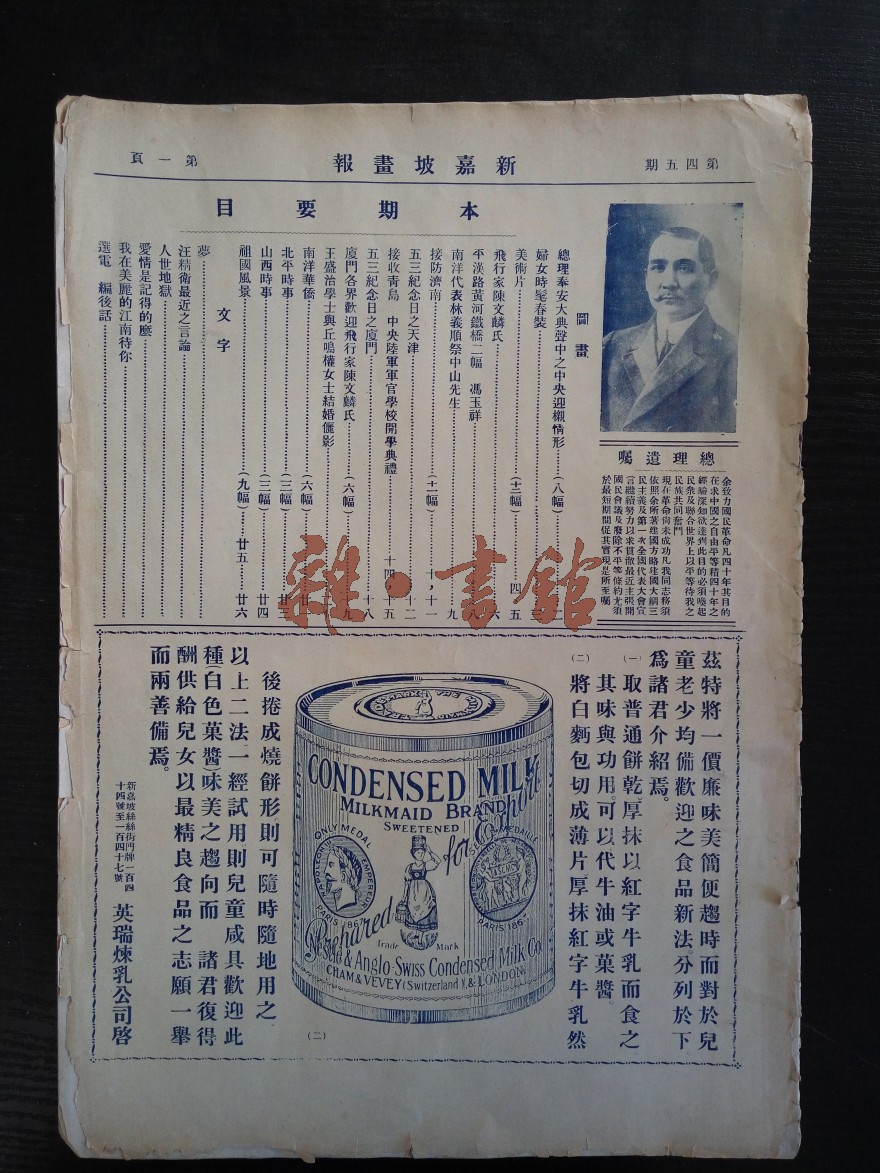 第四五期
新嘉坡畫報
第一頁
總理遺囑
余致力國民革命凡四十年其目的
在求中國之自由平等積四十年之
經驗深知欲達到此目的必須喚起
民衆及聯合世界上以平等待我之
民族共同奮鬥
現在革命尙未成功凡我同志務須
依照余所著建國方略建國大綱三
民主義及第一次全國代表大會宣
言繼續努力以求貫徹最近主張開
國民會議及廢除不平等條約尤須
於最短期間促其實現是所至囑
本期要目
圖畫
總理奉安大典聲中之中央迎櫬情形（八幅）
婦女時髦春裝
美術片（十二幅）四
飛行家陳文麟氏五
平漢路黃河鐵橋二幅 馮玉祥六
南洋代表林義順祭中山先生九
接防濟南（十一幅）十，十一
五三紀念日之天津十二
接收靑島 中央陸軍軍官學校開學典禮十四，十五
五三紀念日之廈門十八
廈門各界歡迎飛行家陳文麟氏（六幅）
王盛治學士與丘鳴權女士結婚儷影
南洋華僑（六幅）
北平時事（三幅）
山西時事（三幅）廿四
祖國風景（九幅）廿五，廿六
文字
夢
汪精衛最近之言論
人世地獄
愛情是記得的麽
我在美麗的江南待你
選電 編後話
雜·書館
茲特將一價廉味美簡便趨時而對於兒
童老少均備歡迎之食品新法分列於下
爲諸君介紹焉。
（一）取普通餅乾，厚抹以紅字牛乳而食之
其味與功用。可以代牛油或菓醬。
（二）將白麵包切成薄片厚抹紅字牛乳然
CONDENSED MILK
MILKMAID BRAND
SWEETENED
for Export
ONLY MEDAL
NAPOLEON III EMPEREUR
PARIS 1867
PARIS 1867
Prepared
Trade Mark
Nestlé & Anglo-Swiss Condensed Milk Co.
CHAM & VEVEY (Switzerland), & LONDON
（二）
後捲成燒餅形則可隨時隨地用之
以上二法一經試用則兒童咸具歡迎此
種（白色菓醬）味美之趨向而 諸君復得
酬供給兒女以最精良食品之志願一舉
而兩善備焉。
新嘉坡絲絲街門牌一百四
十四號至一百四十七號
英瑞煉乳公司啓